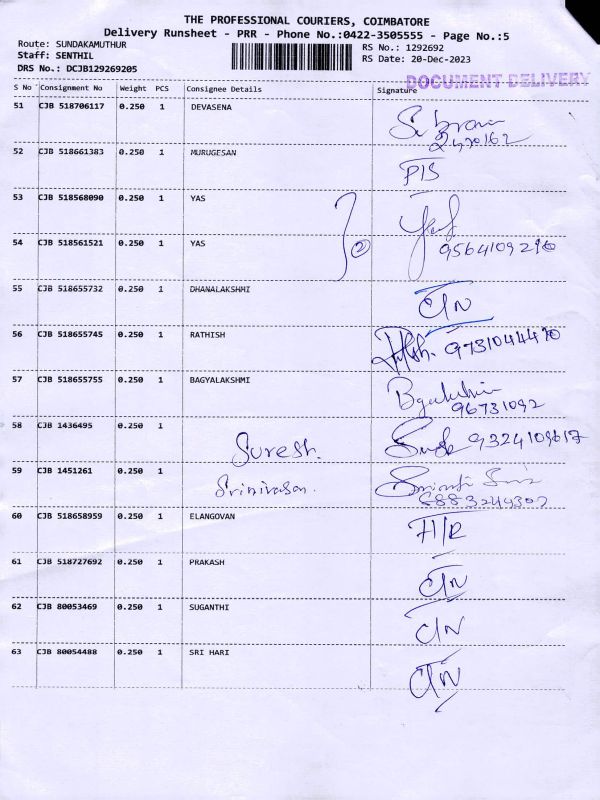 THE PROFESSIONAL COURIERS, COIMBATORE
Delivery Runsheet - PRR - Phone No.:0422-3505555 - Page No.:5
Route: SUNDAKAMUTHUR
RS No.: 1292692
Staff: SENTHIL
RS Date: 20-Dec-2023
DRS No.: DCJB129269205
DOCUMENT DELIVERY
S No Consignment No Weight PCS Consignee Details Signature
51 CJB 518706117 0.250 1 DEVASENA
52 CJB 518661383 0.250 1 MURUGESAN
53 CJB 518568090 0.250 1 YAS
54 CJB 518561521 0.250 1 YAS
2
55 CJB 518655732 0.250 1 DHANALAKSHMI
56 CJB 518655745 0.250 1 RATHISH
57 CJB 518655755 0.250 1 BAGYALAKSHMI
96731092
58 CJB 1436495 0.250 1
Suresh. 9324109617
59 CJB 1451261 0.250 1
Srinivasan.
60 CJB 518658959 0.250 1 ELANGOVAN
61 CJB 518727692 0.250 1 PRAKASH
62 CJB 80053469 0.250 1 SUGANTHI
63 CJB 80054488 0.250 1 SRI HARI